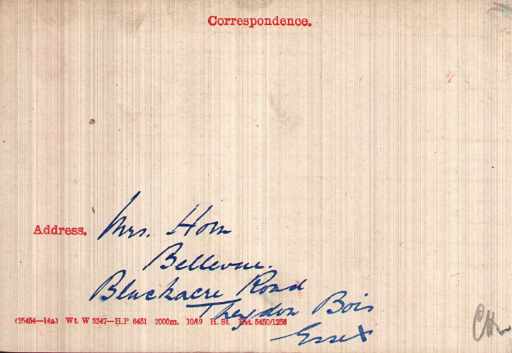 Correspondence.
Address. Mrs. Horn
Bellevue.
Blackacre Road
Theydon Bois
(35454—14a) Wt. W 5347—H.P 6451 2000m. 10/19 H. St.
Essex